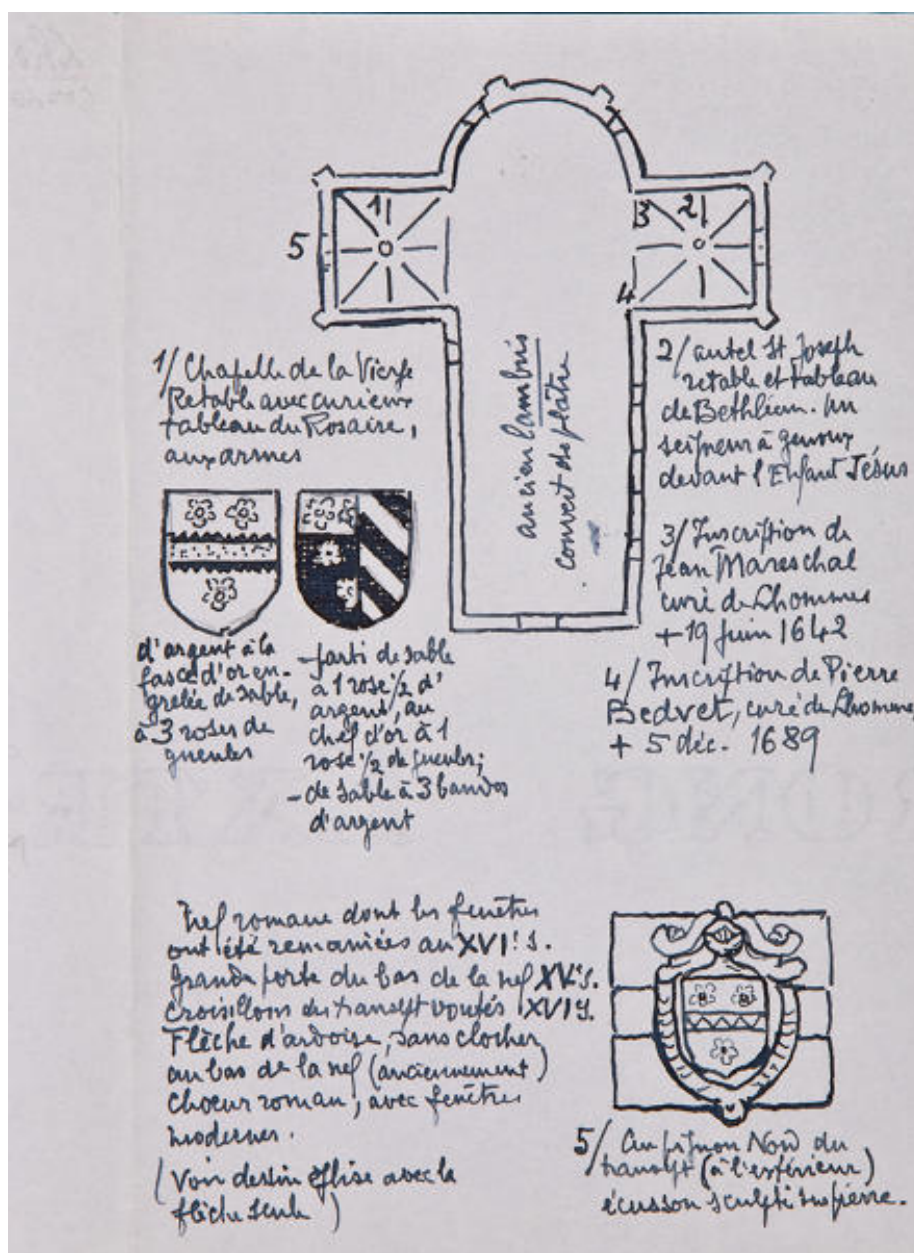 1
5
3 2
4
ancien lambris
couvert de plâtre
1/ Chapelle de la Vierge
Retable avec curieux
tableau du Rosaire,
aux armes
d'argent à la
fasce d'or en-
grelée de sable,
à 3 roses de
gueules
- parti de sable
à 1 rose 1/2 d'
argent, au
chef d'or à 1
rose 1/2 de gueules;
- de sable à 3 bandes
d'argent
2/ autel St Joseph
retable et tableau
de Bethléem. Un
seigneur à genoux
devant l'Enfant Jésus
3/ Inscription de
Jean Mareschal
curé de Lhommes
+ 19 juin 1642
4/ Inscription de Pierre
Bedvet, curé de Lhomme,
+ 5 déc. 1689
Nef romane dont les fenêtres
ont été remaniées au XVIe s.
Grande porte du bas de la nef XVe s.
Croisillons du transept voutés XVIe s.
Flèche d'ardoise, sans clocher
au bas de la nef (anciennement)
Choeur roman, avec fenêtres
modernes.
(Voir dessin église avec la
flèche seule)
5/ Au pignon Nord du
transept (à l'extérieur)
écusson sculpté sur pierre.